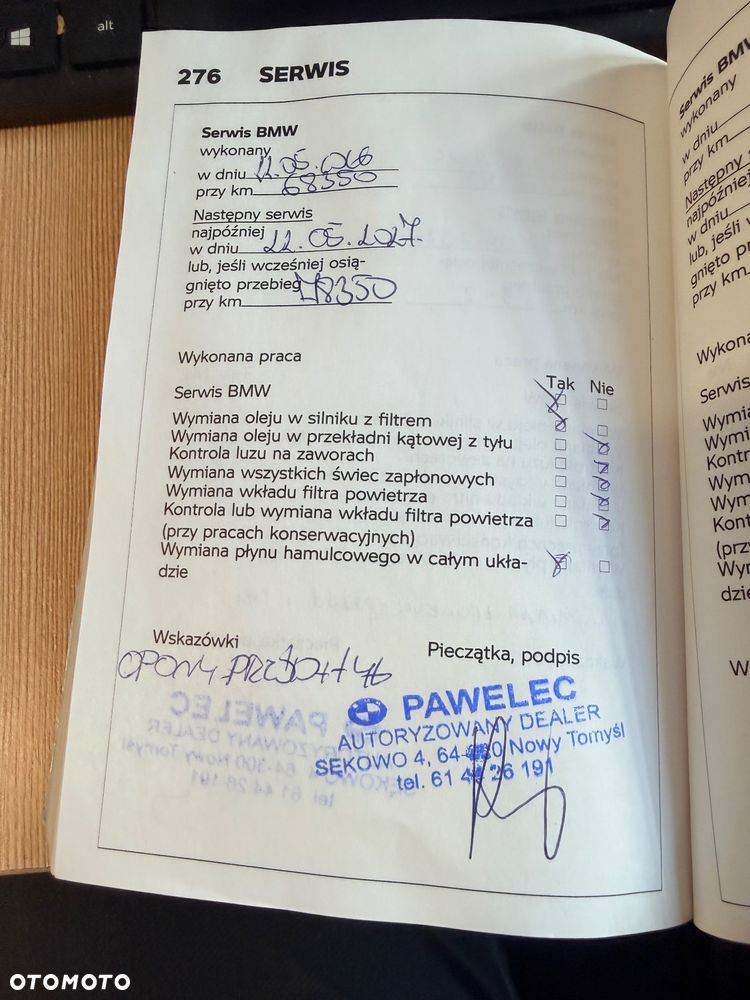 alt
276 SERWIS
Serwis BMW
wykonany
w dniu 22.05.2026
przy km 68350
Następny serwis
najpóźniej
w dniu 22.05.2027.
lub, jeśli wcześniej osią-
gnięto przebieg
przy km 78350
Wykonana praca
Tak Nie
Serwis BMW
Wymiana oleju w silniku z filtrem
Wymiana oleju w przekładni kątowej z tyłu
Kontrola luzu na zaworach
Wymiana wszystkich świec zapłonowych
Wymiana wkładu filtra powietrza
Kontrola lub wymiana wkładu filtra powietrza
(przy pracach konserwacyjnych)
Wymiana płynu hamulcowego w całym ukła-
dzie
Wskazówki
OPONY PRZÓD + TYŁ
Pieczątka, podpis
PAWELEC
AUTORYZOWANY DEALER
SĘKOWO 4, 64-300 Nowy Tomyśl
tel. 61 44 26 191
Serwis BMW
wykonany
w dniu
przy km
Następny
najpóźniej
w dniu
lub, jeśli
gnięto
przy km
Serwis
OTOMOTO